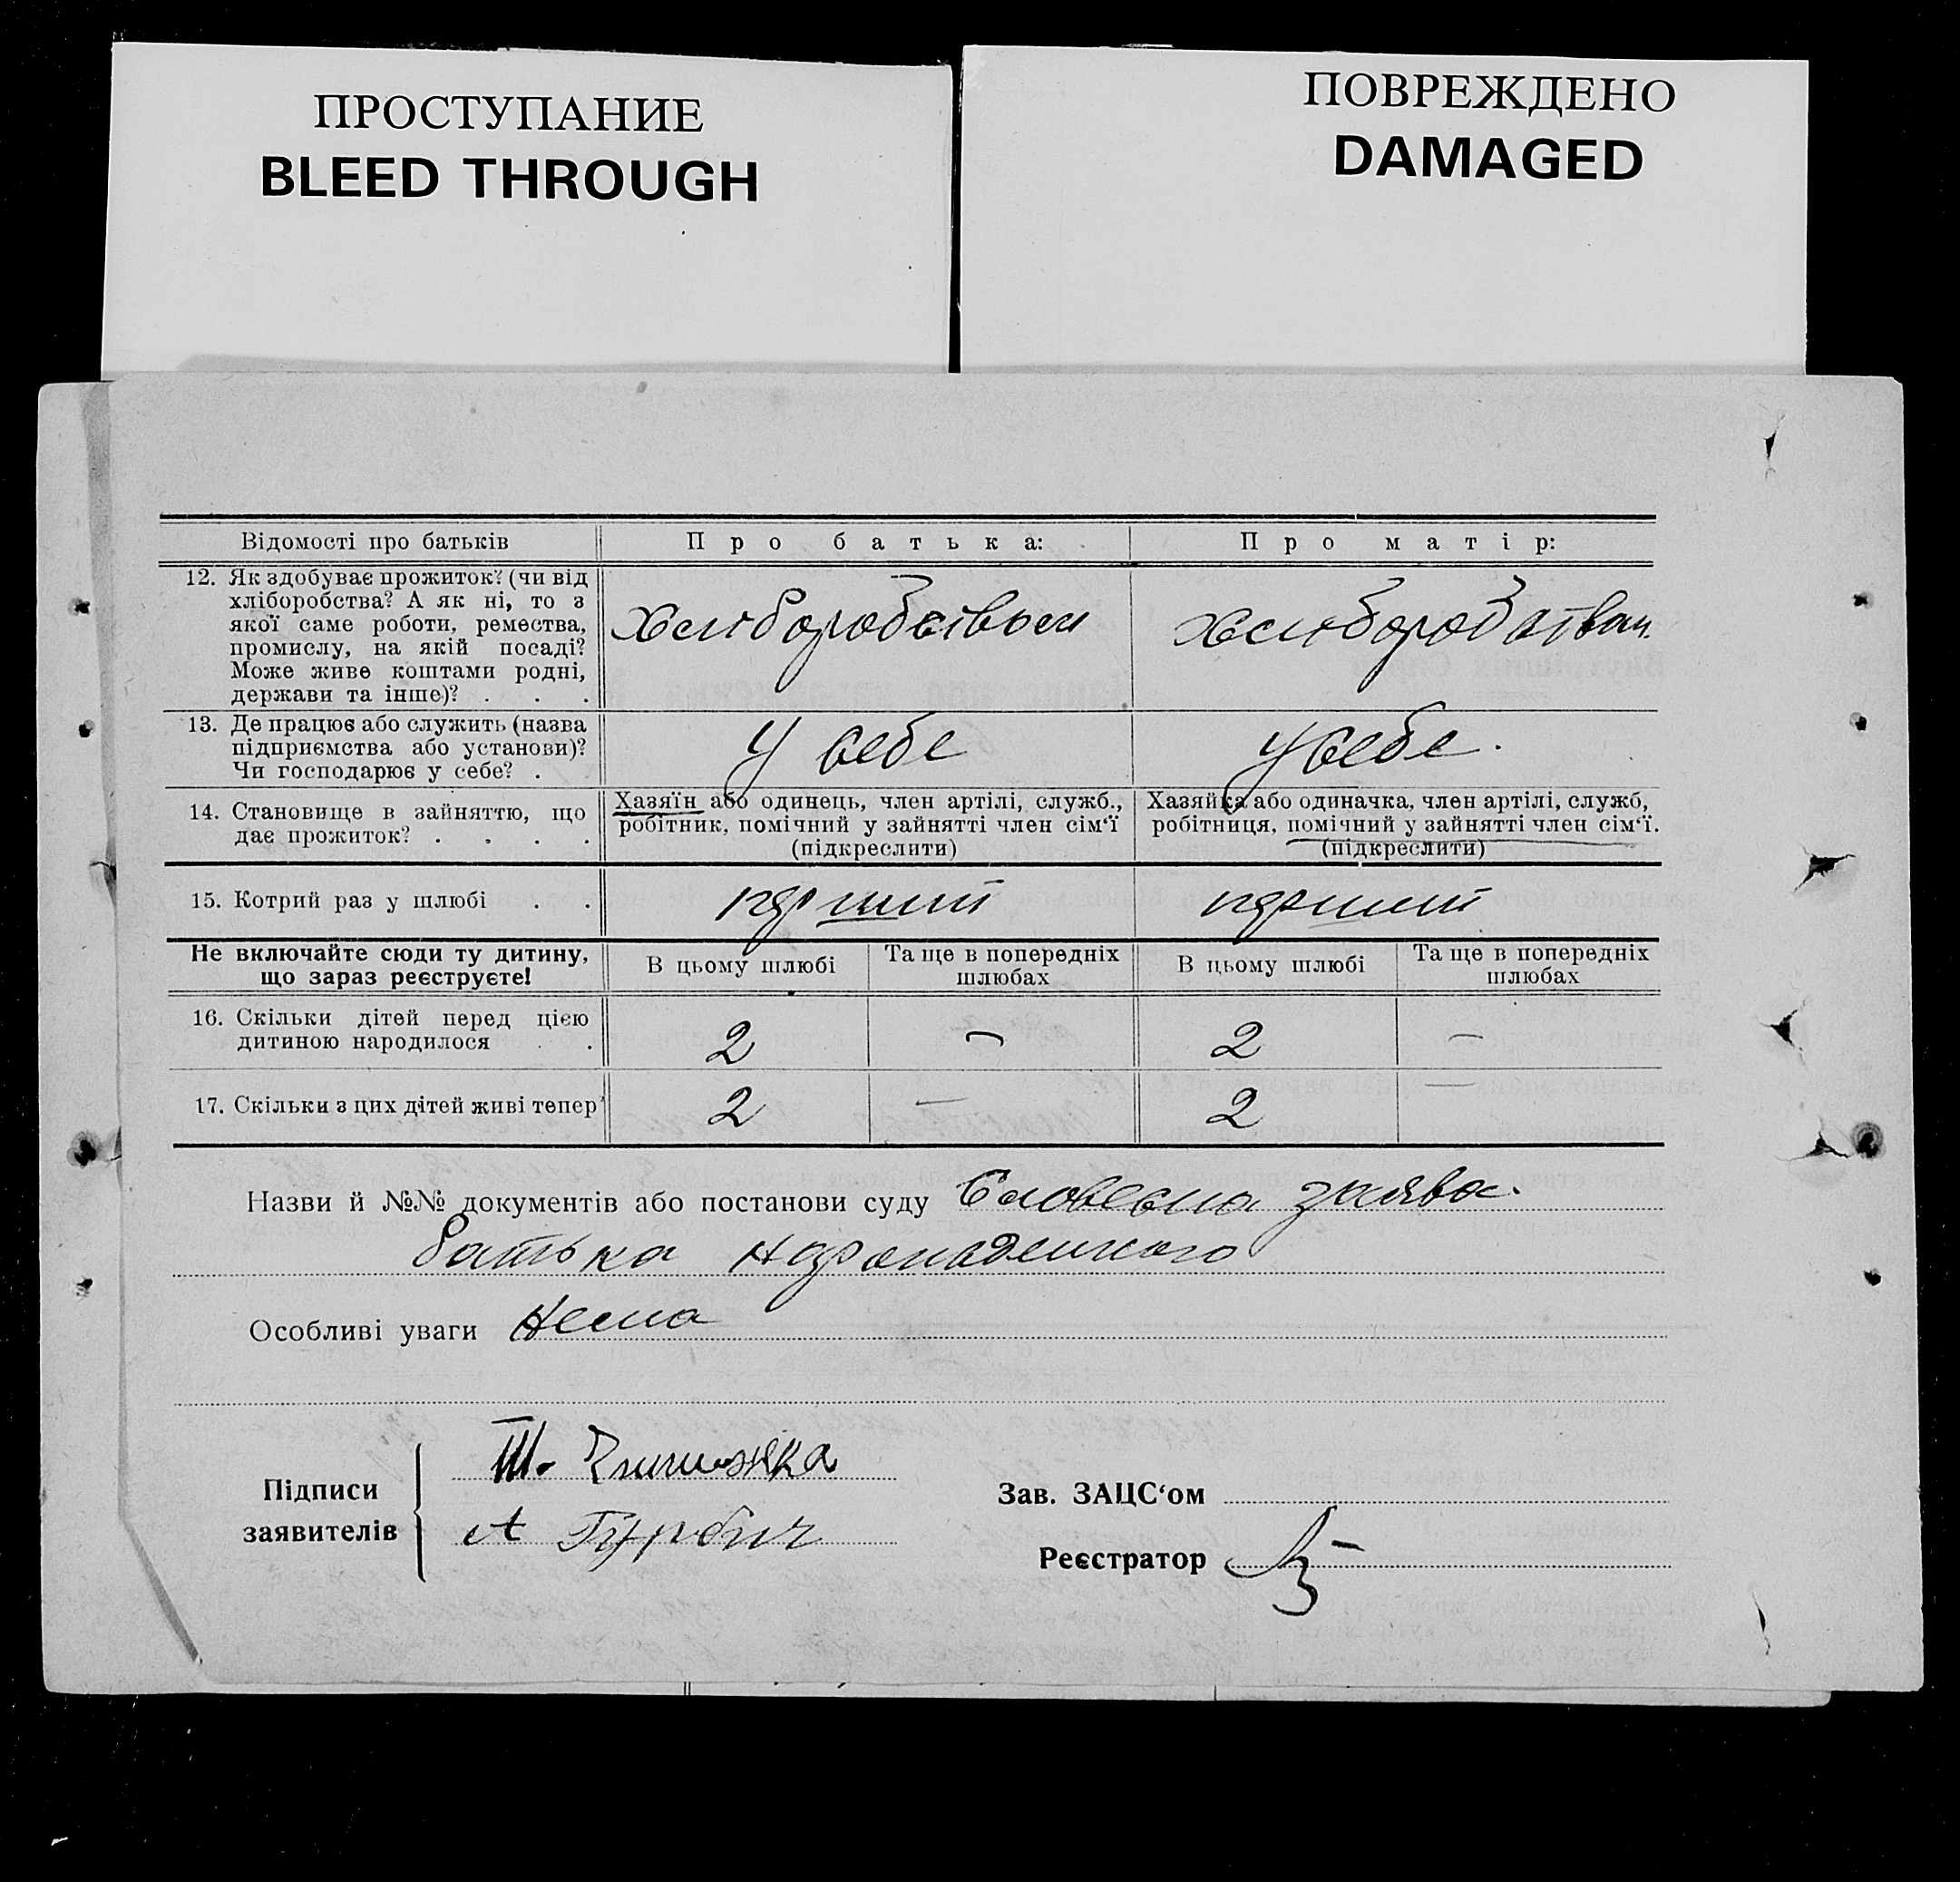 ПРОСТУПАНИЕ
BLEED THROUGH
ПОВРЕЖДЕНО
DAMAGED
Відомості про батьків
Про батька:
Про матір:
12. Як здобуває прожиток? (чи від
хліборобства? А як ні, то з
якої саме роботи, ремества,
промислу, на якій посаді?
Може живе коштами родні,
держави та інше)? . . .
Хліборобством
Хліборобством
13. Де працює або служить (назва
підприємства або установи)?
Чи господарює у себе? .
У себе
У себе.
14. Становище в зайняттю, що
дає прожиток? . . . .
Хазяїн або одинець, член артілі, служб.,
робітник, помічний у зайнятті член сім‘ї
(підкреслити)
Хазяйка або одиначка, член артілі, служб,
робітниця, помічний у зайнятті член сім‘ї.
(підкреслити)
15. Котрий раз у шлюбі . .
перший
перший
Не включайте сюди ту дитину,
що зараз реєструєте!
В цьому шлюбі
Та ще в попередніх
шлюбах
В цьому шлюбі
Та ще в попередніх
шлюбах
16. Скільки дітей перед цією
дитиною народилося . .
2 – 2 –
17. Скільки з цих дітей живі тепер?
2 – 2 –
Назви й №№ документів або постанови суду Словесна заява
батька
Особливі уваги Нема
Підписи
заявителів
Зав. ЗАЦС‘ом
Реєстратор